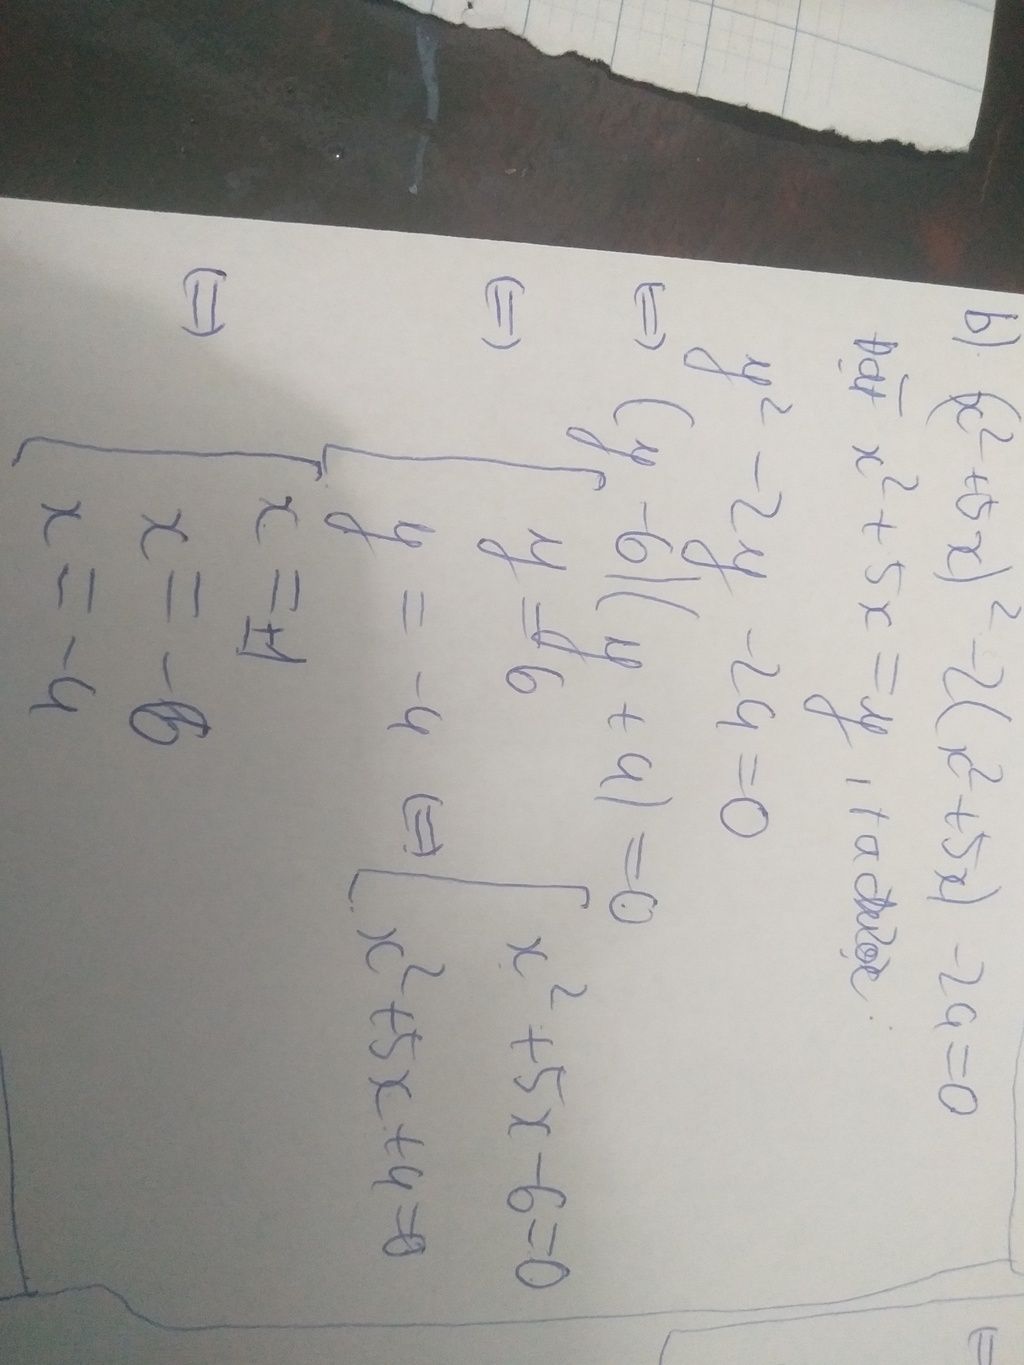 b) (x² + 5x)² - 2(x² + 5x) - 24 = 0
Đặt x² + 5x = y, ta được:
y² - 2y - 24 = 0
⇔ (y - 6)(y + 4) = 0
⇔ [ y = 6
y = -4 ⇔ [ x² + 5x - 6 = 0
x² + 5x + 4 = 0
⇔ [ x = ±1
x = -6
x = -4
=